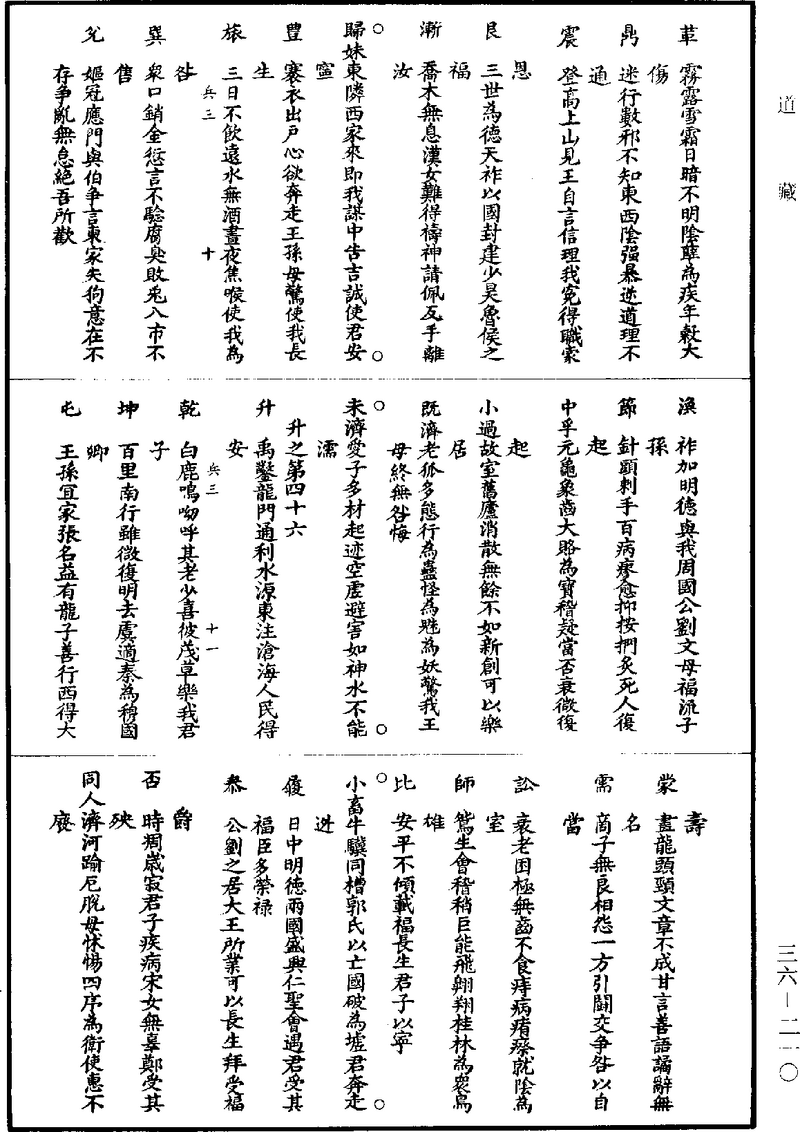 道藏
革　霧露雪霜日暗不明陰孽為疾年穀大
傷
鼎　迷行數邪不知東西陰强暴逆道理不
通
震　登高上山見王自言信理我寃得職蒙
恩
艮　三世為德天祚以國封建少昊魯侯之
福
漸　喬木無息漢女難得禱神請佩反手離
汝
歸妹東隣西家來即我謀中告吉誠使君安
寧
豐　褰衣出戶心欲奔走王孫母驚使我長
生
旅　三日不飲遠水無酒晝夜焦喉使我為
咎
兵三　十
巽　衆口銷金愆言不驗腐臭敗兎入市不
售
兊　嫗冠應門與伯爭言東家失狗意在不
存爭亂無怠絕吾所歡
渙　祚加明德與我周國公劉文母福流子
孫
節　針頭刺手百病瘳愈抑按捫灸死人復
起
中孚元龜象齒大賂為寶稽疑當否衰微復
起
小過故室舊廬消散無餘不如新創可以樂
居
既濟老狐多態行為蠱怪為魅為妖驚我王
母終無咎悔
未濟愛子多材起迹空虛避害如神水不能
濡
升之第四十六
升　禹鑿龍門通利水源東注滄海人民得
安
兵三　十一
乾　白鹿鳴呦呼其老少喜彼茂草樂我君
子
坤　百里南行雖微復明去虞適秦為穆國
卿
屯　王孫宜家張名益有龍子善行西得大
壽
蒙　畫龍頭頸文章不成甘言善語譎辭無
名
需　商子無良相怨一方引鬪交爭咎以自
當
訟　衰老困極無齒不食痔病痟瘵就陰為
室
師　鴛生會稽稍巨能飛翺翔桂林為衆鳥
雄
比　安平不傾載福長生君子以寧
小畜牛驥同槽郭氏以亡國破為墟君奔走
迯
履　日中明德兩國盛興仁聖會遇君受其
福臣多榮祿
泰　公劉之居大王所業可以長生拜受福
爵
否　時凋歲寂君子疾病宋女無辜鄭受其
殃
同人濟河踰厄脫母怵惕四序為衛使惠不
廢
三六—二一〇